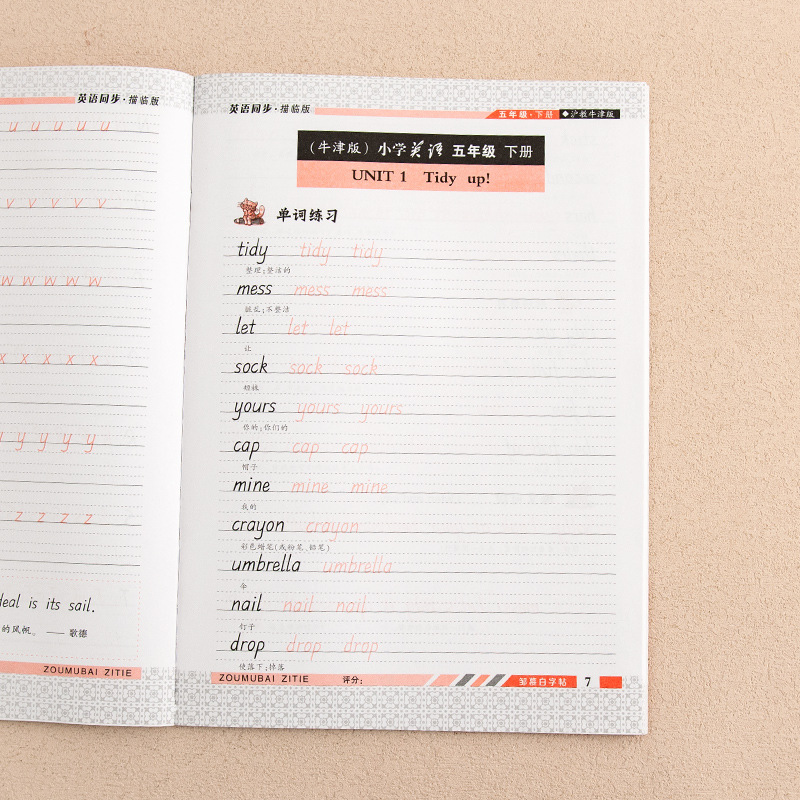 英语同步·描临版
u u u u u
v v v v v
w w w w w
x x x x x
y y y y y
z z z z
deal is its sail.
的风帆。 —— 歌德
ZOUMUBAI ZITIE
英语同步·描临版
五年级·下册 ◆沪教牛津版
(牛津版) 小学英语 五年级 下册
UNIT 1 Tidy up!
单词练习
tidy tidy tidy
整理;整洁的
mess mess mess
脏乱;不整洁
let let let
让
sock sock sock
短袜
yours yours yours
你的;你们的
cap cap cap
帽子
mine mine mine
我的
crayon crayon
彩色蜡笔(或粉笔、铅笔)
umbrella umbrella
伞
nail nail nail
钉子
drop drop drop
使落下;掉落
ZOUMUBAI ZITIE 评分: 邹慕白字帖 7